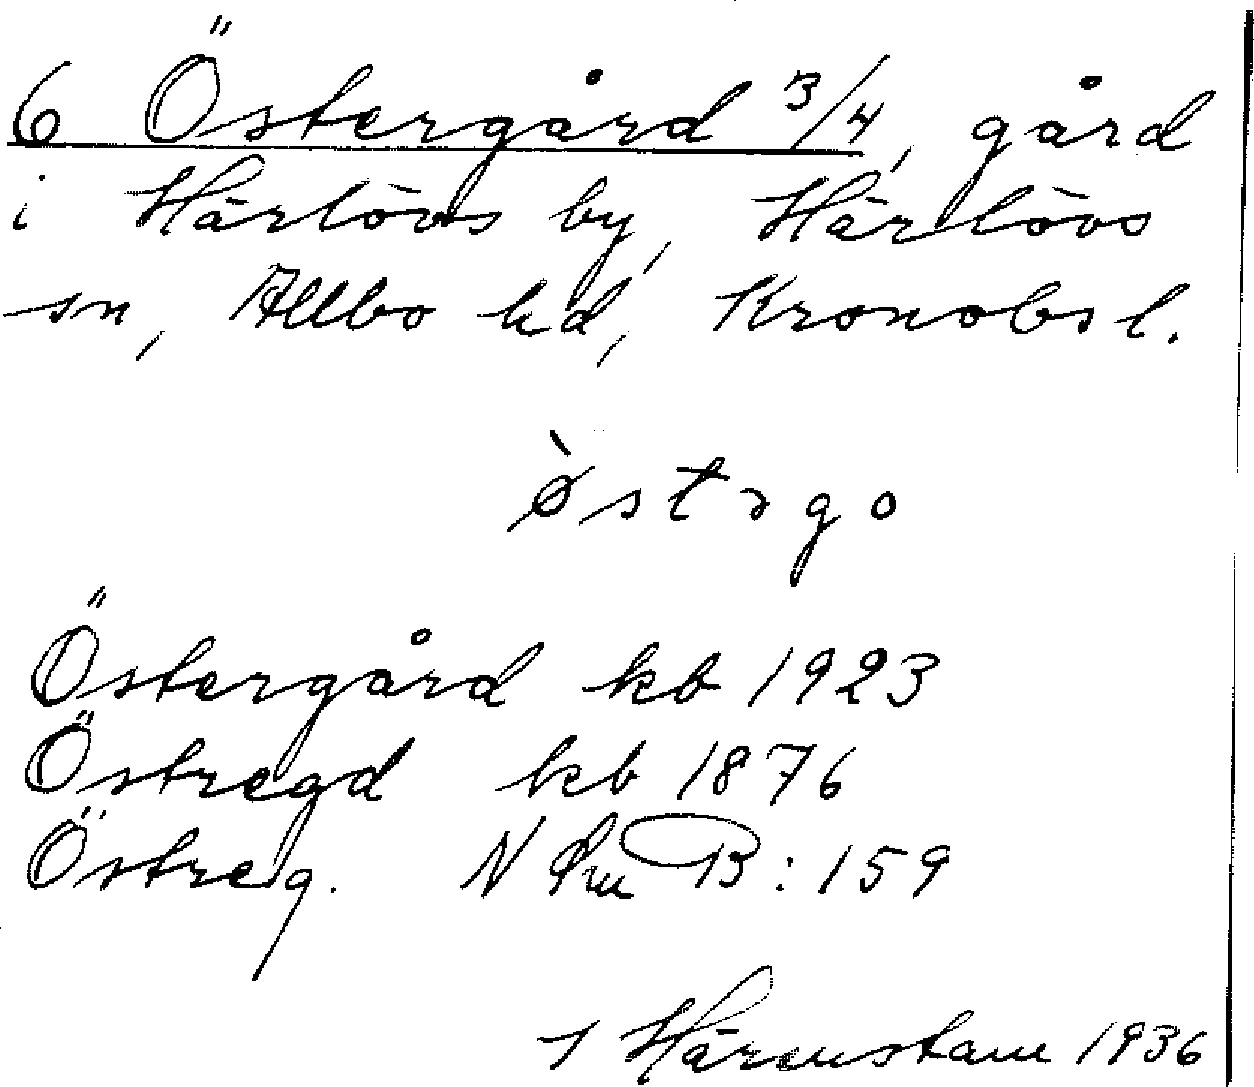 6 Östergård 3/4, gård
i Härlövs by, Härlövs
sn, Allbo hd, Kronobs l.
ø̀stɘgo
Östergård kb 1923
Östregd kb 1876
Östreg. N B:159
Härenstam 1936